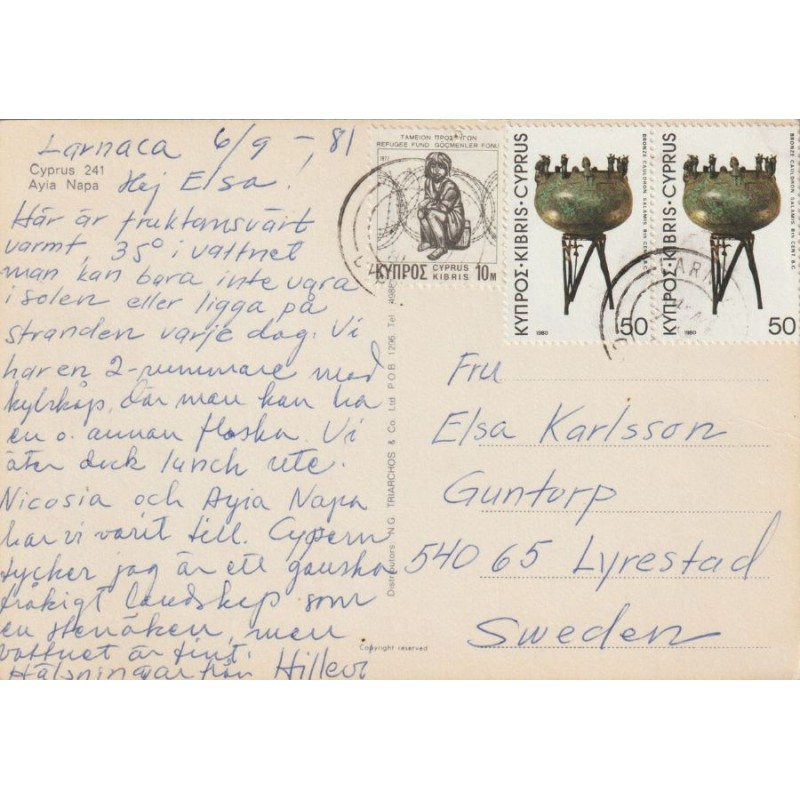 Larnaca 6/9 -, 81
Cyprus 241
Ayia Napa
Hej Elsa!
Här är fruktansvärt
varmt, 35° i vattnet
man kan bara inte vara
i solen eller ligga på
stranden varje dag. Vi
har en 2-rummare med
kylskåp, där man kan ha
en o. annan flaska. Vi
äter dock lunch ute.
Nicosia och Ayia Napa
har vi varit till. Cypern
tycker jag är ett ganska
tråkigt landskap som
en stenåken, men
vattnet är fint.
Hälsningar från Hillevi
Distributors: N.G. TRIARCHOS & Co. Ltd P.O.B. 1206, Tel.
Copyright reserved
ΤΑΜΕΙΟΝ ΠΡΟΣΦΥΓΩΝ
REFUGEE FUND GÖÇMENLER FONU
ΚΥΠΡΟΣ CYPRUS KIBRIS 10M
ΚΥΠΡΟΣ·KIBRIS·CYPRUS
BRONZE CAULDRON SALAMIS 8th CENT. B.C.
1980
50
ΚΥΠΡΟΣ·KIBRIS·CYPRUS
BRONZE CAULDRON SALAMIS 8th CENT. B.C.
1980
50
Fru
Elsa Karlsson
Guntorp
540 65 Lyrestad
Sweden